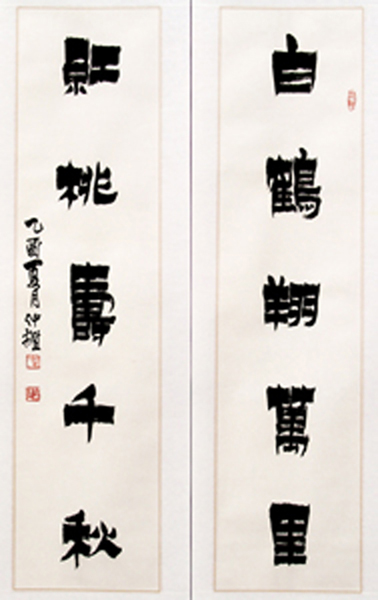 白鶴翔萬里
紅桃壽千秋
乙酉夏月仲權